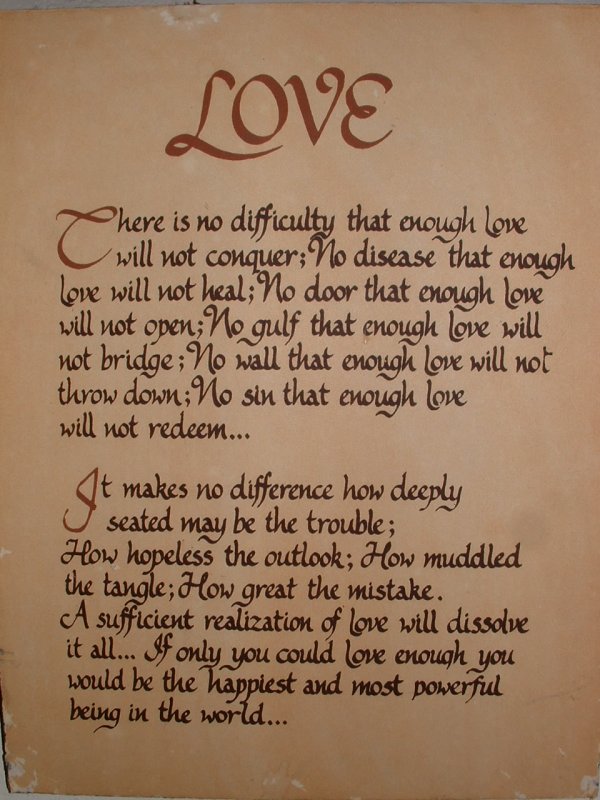 LOVE
There is no difficulty that enough love
will not conquer; No disease that enough
love will not heal; No door that enough love
will not open; No gulf that enough love will
not bridge; No wall that enough love will not
throw down; No sin that enough love
will not redeem...
It makes no difference how deeply
seated may be the trouble;
How hopeless the outlook; How muddled
the tangle; How great the mistake.
A sufficient realization of love will dissolve
it all... If only you could love enough you
would be the happiest and most powerful
being in the world...